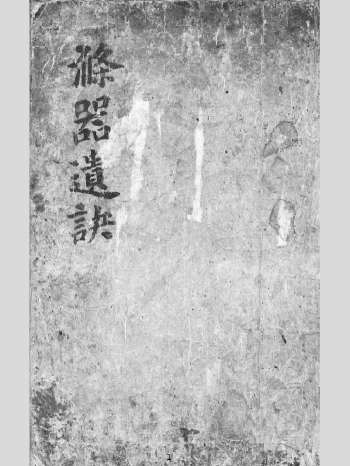 滌器遺訣